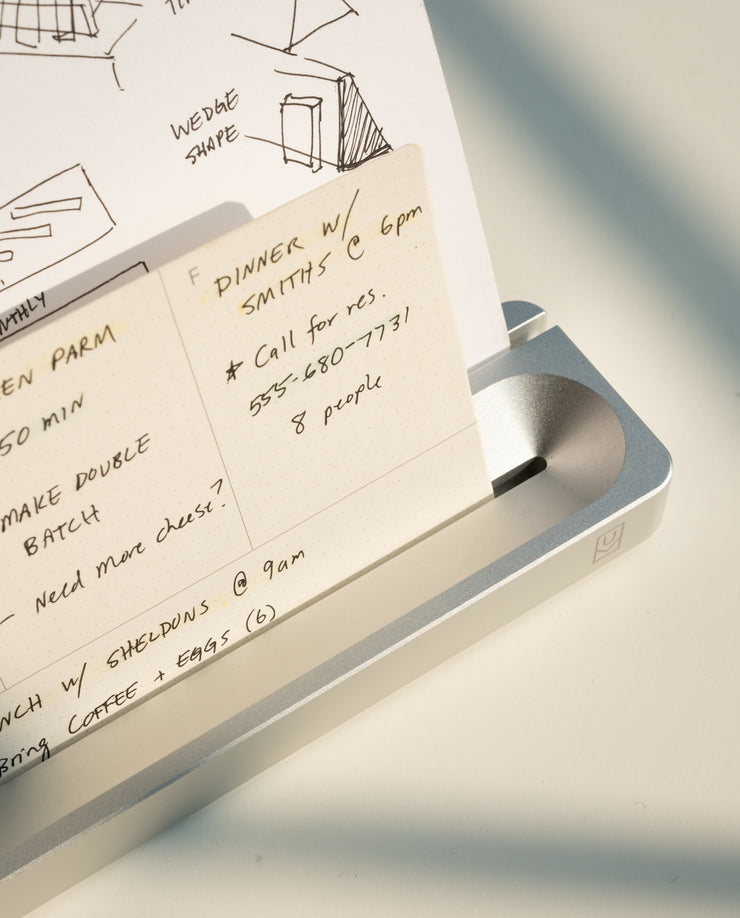 WEDGE
SHAPE
F
DINNER W/
SMITHS @ 6pm
* Call for res.
555-680-7731
8 people
PARM
50 MIN
MAKE DOUBLE
BATCH
- Need more cheese?
W/ SHELDONS @ 9am
Bring COFFEE + EGGS (6)